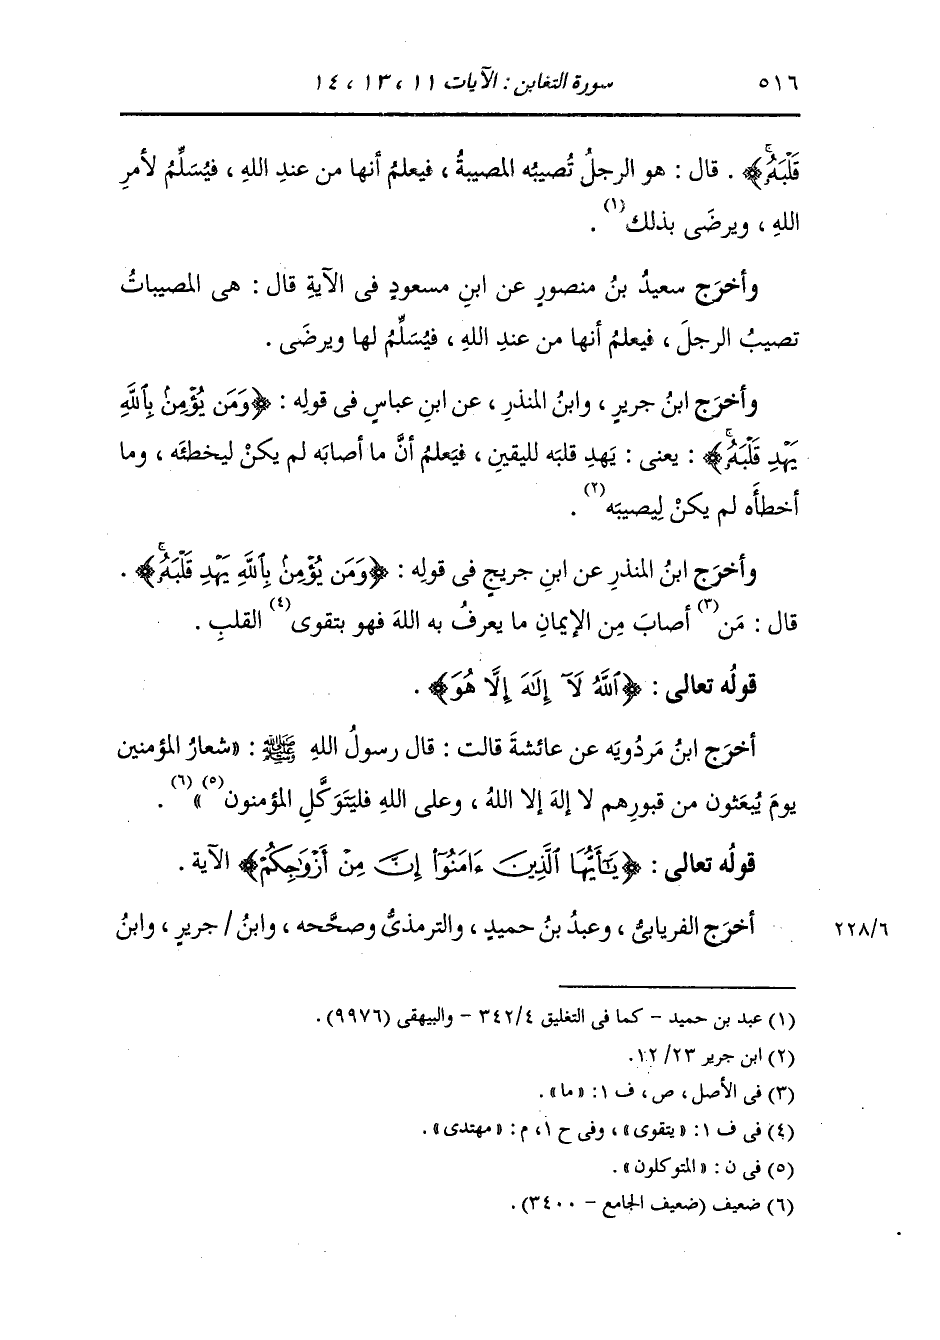 ٥١٦ سورة التغابن : الآيات ١١ ، ١٣ ، ١٤
قَلْبَهُۥۚ﴾ . قال : هو الرجلُ تُصيبُه المصيبةُ ، فيعلمُ أنها من عندِ اللهِ ، فيُسَلِّمُ لأمرِ
اللهِ ، ويرضَى بذلك(١) .
وأخرَج سعيدُ بنُ منصورٍ عن ابنِ مسعودٍ فى الآيةِ قال : هى المصيباتُ
تصيبُ الرجلَ ، فيعلمُ أنها من عندِ اللهِ ، فيُسَلِّمُ لها ويرضَى .
وأخرَج ابنُ جريرٍ ، وابنُ المنذرِ ، عن ابنِ عباسٍ فى قولِه : ﴿وَمَن يُؤْمِنۢ بِٱللَّهِ
يَهْدِ قَلْبَهُۥۚ﴾ : يعنى : يَهدِ قلبَه لليقينِ ، فيَعلمُ أنَّ ما أصابَه لم يكنْ ليخطئَه ، وما
أخطأَه لم يكنْ لِيصيبَه(٢) .
وأخرَج ابنُ المنذرِ عن ابنِ جريجٍ فى قولِه : ﴿وَمَن يُؤْمِنۢ بِٱللَّهِ يَهْدِ قَلْبَهُۥۚ﴾ .
قال : مَن(٣) أصابَ مِن الإيمانِ ما يعرفُ به اللهَ فهو بتقوى(٤) القلبِ .
قولُه تعالى : ﴿ٱللَّهُ لَآ إِلَٰهَ إِلَّا هُوَ﴾ .
أخرَج ابنُ مَردويَه عن عائشةَ قالت : قال رسولُ اللهِ ﷺ : «شعارُ المؤمنين
يومَ يُبعَثون من قبورِهم لا إلهَ إلا اللهُ ، وعلى اللهِ فليَتَوكَّلِ المؤمنون(٥)»(٦) .
قولُه تعالى : ﴿يَٰٓأَيُّهَا ٱلَّذِينَ ءَامَنُوٓا۟ إِنَّ مِنْ أَزْوَٰجِكُمْ﴾ الآية .
أخرَج الفريابىُّ ، وعبدُ بنُ حميدٍ ، والترمذىُّ وصحَّحه ، وابنُ / جريرٍ ، وابنُ ٢٢٨/٦
(١) عبد بن حميد - كما فى التغليق ٣٤٢/٤ - والبيهقى (٩٩٧٦) .
(٢) ابن جرير ٢٣/ ١٢.
(٣) فى الأصل ، ص ، ف ١: «ما» .
(٤) فى ف ١: «يتقوى» ، وفى ح ١، م : «مهتدى» .
(٥) فى ن : «المتوكلون» .
(٦) ضعيف (ضعيف الجامع - ٣٤٠٠) .